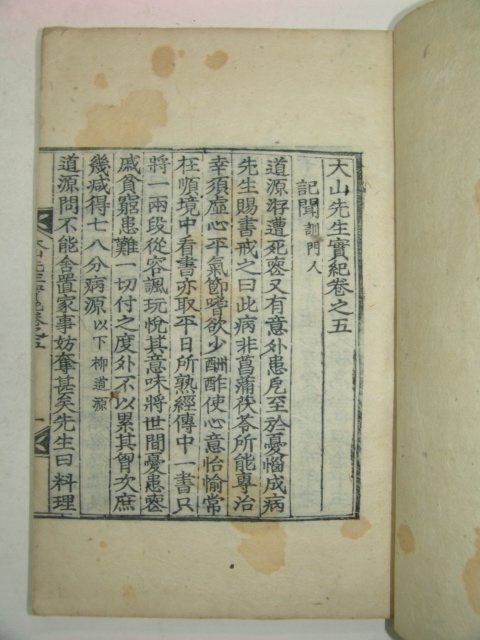 大山先生實紀卷之五
記聞 訓門人
道源洊遭死喪又有意外患戹至於憂惱成病
先生賜書戒之曰此病非菖蒲茯苓所能專治
幸須虛心平氣節嗜欲少酬酢使心意怡愉常
在順境中看書亦取平日所熟經傳中一書只
將一兩段從容諷玩悅其意味將世間憂患喪
戚貧窮患難一切付之度外不以累其胷次庶
幾減得七八分病源 以下柳道源
道源問不能舍置家事妨奪甚矣先生曰料理
大山先生實紀卷之五 一